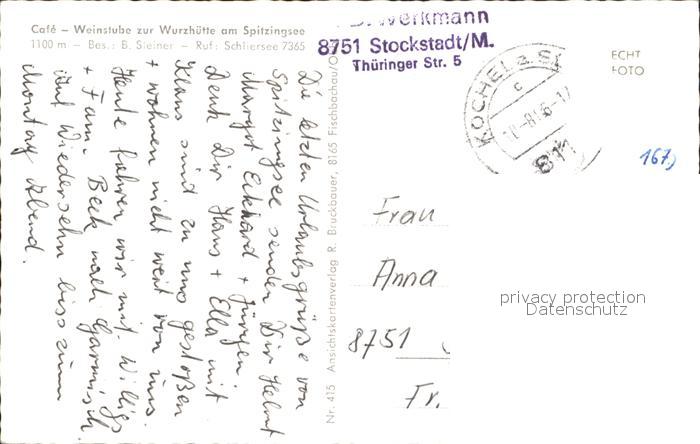 Café - Weinstube zur Wurzhütte am Spitzingsee
1100 m - Bes.: B. Sleiner - Ruf: Schliersee 7365
Werkmann
8751 Stockstadt/M.
Thüringer Str. 5
KOCHEL a. S
c
811
ECHT
FOTO
167)
Die letzten Urlaubsgrüße von
Spitzingsee senden Dir Helmut
Margot Eckhard + Jürgen.
Denk Dir Hans + Ella mit
Klaus sind zu uns gestoßen
+ wohnen nicht weit von uns.
Heute fahren wir mit Willigs
+ Fam. Beck nach Garmisch.
Auf Wiedersehn biss zum
Montag Abend.
Nr. 415 Ansichtskartenverlag R. Bruckbauer, 8165 Fischbachau/O
Frau
Anna
8751
Fr.
privacy protection
Datenschutz